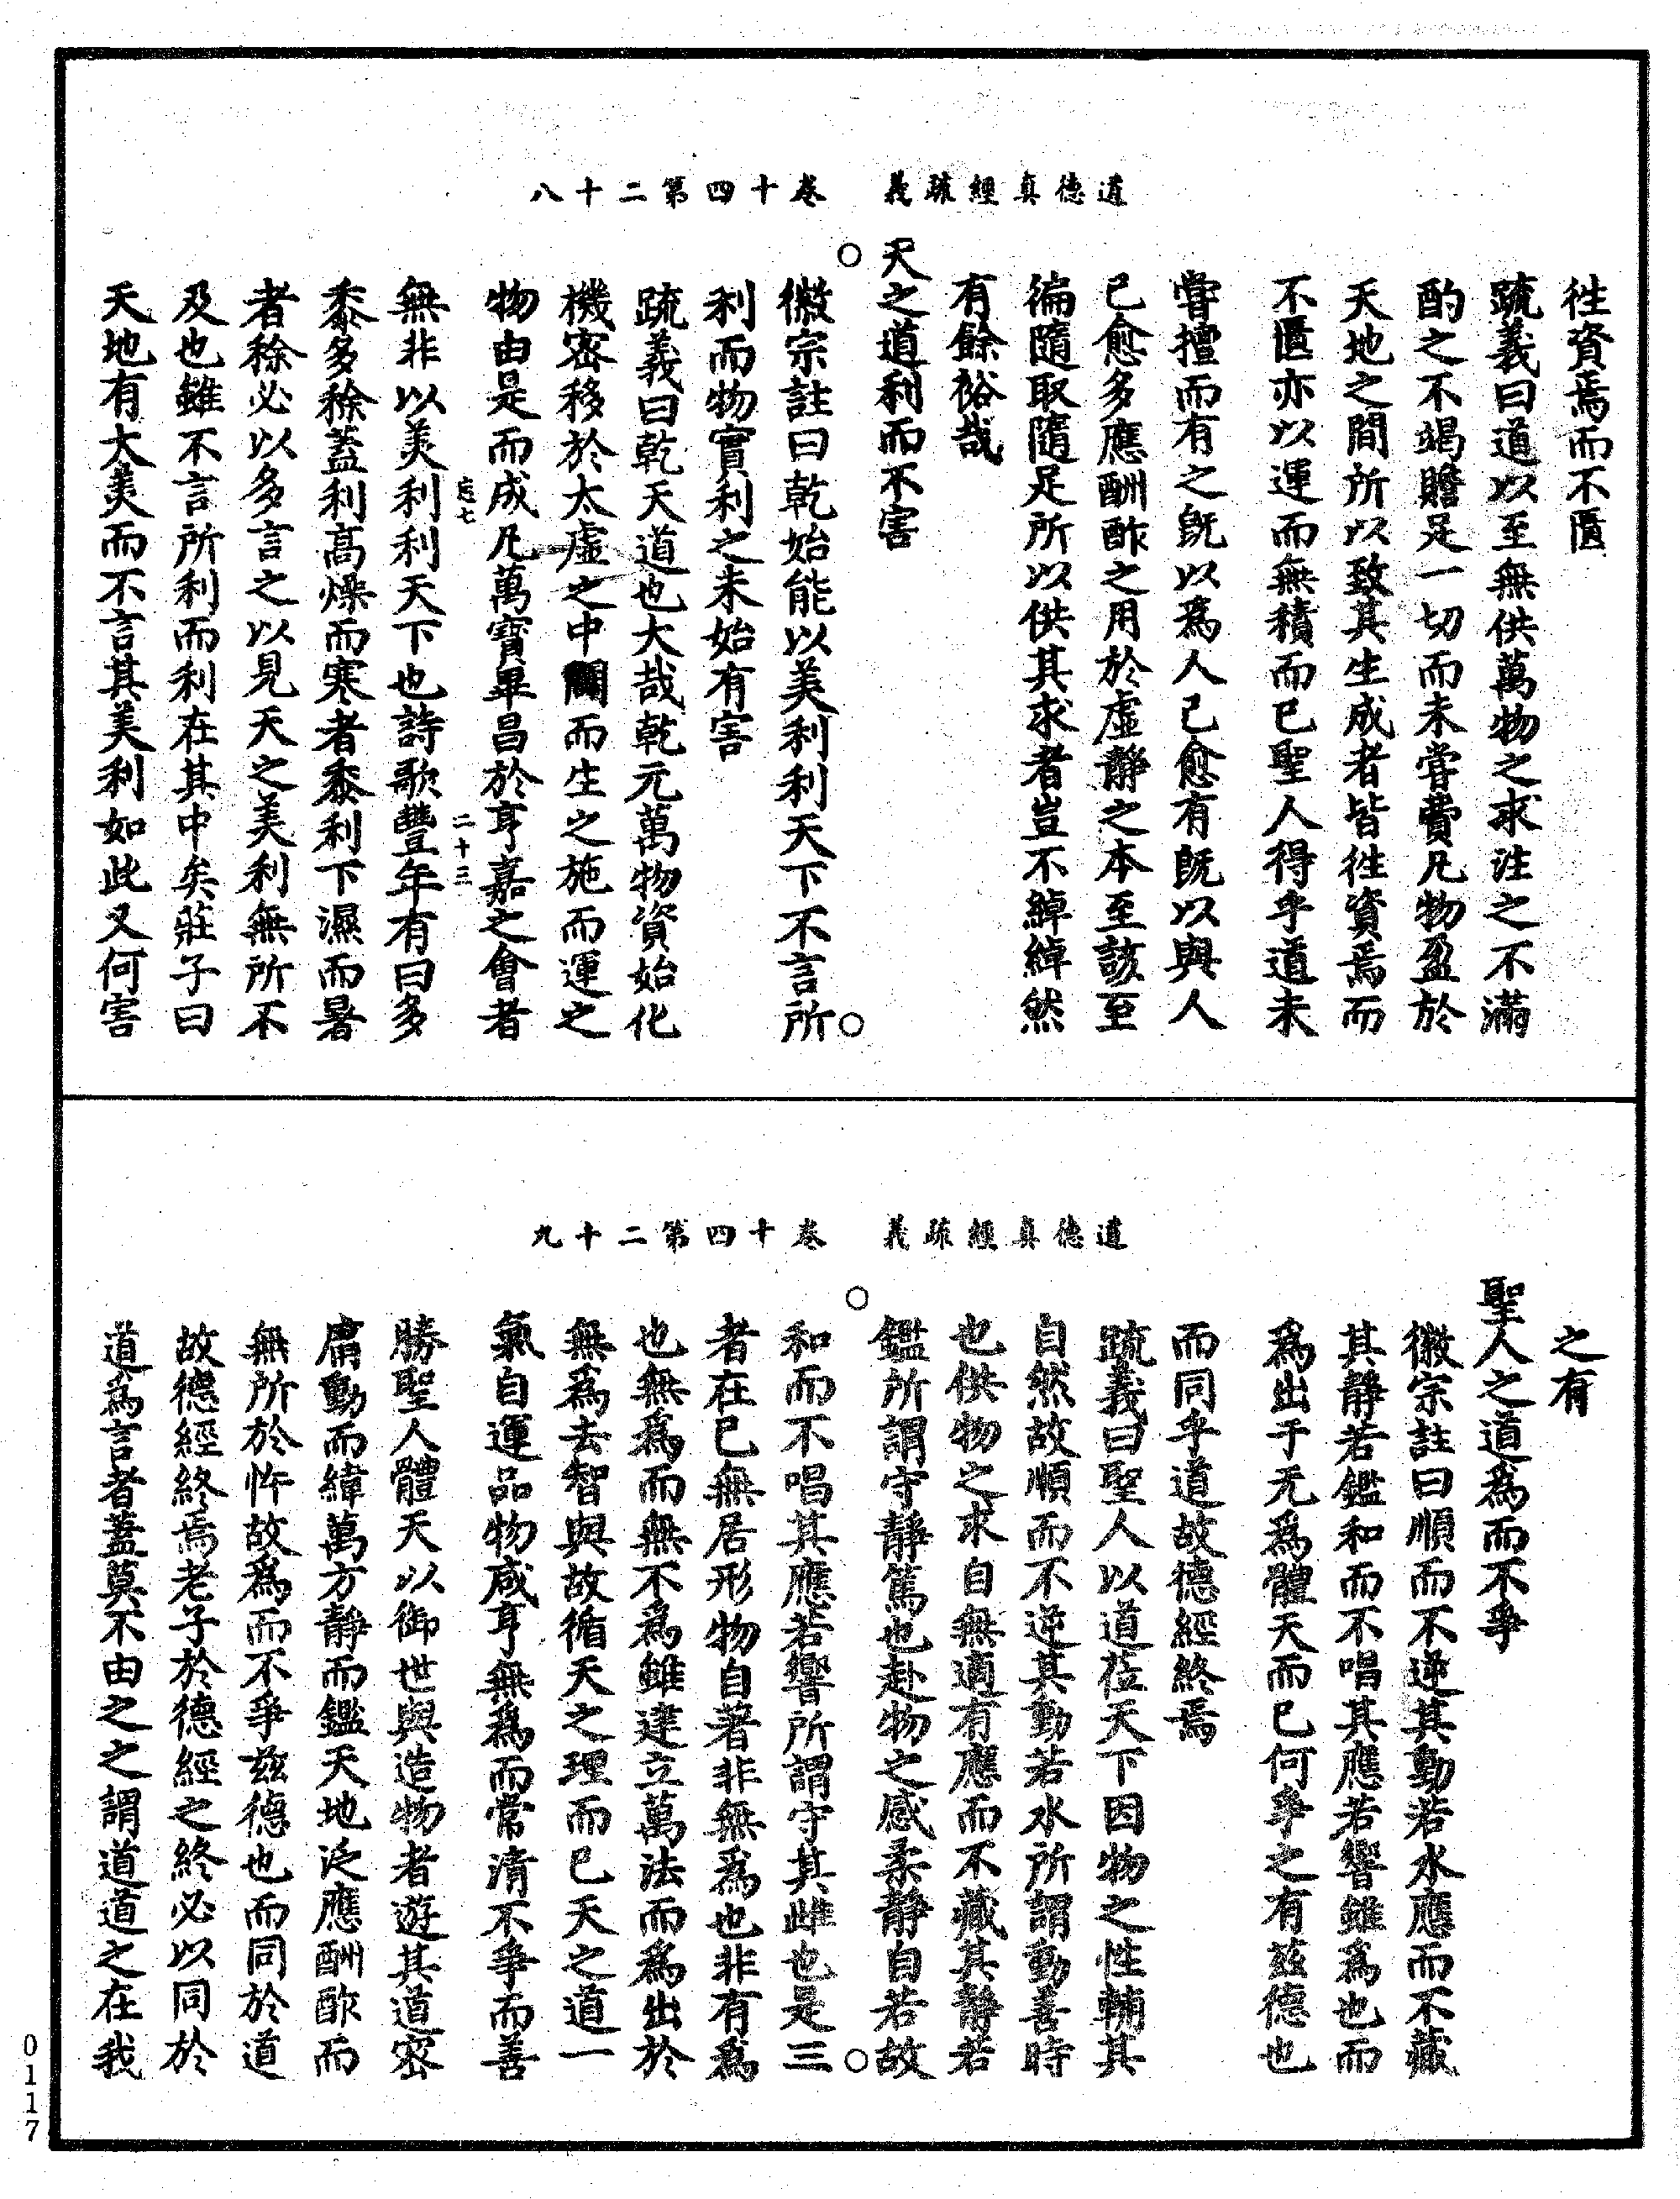 道德真經疏義　卷十四第二十八
徃資焉而不匱
疏義曰道以至無供萬物之求注之不滿
酌之不竭贍足一切而未嘗費凡物盈於
天地之間所以致其生成者皆徃資焉而
不匱亦以運而無積而已聖人得乎道未
嘗擅而有之旣以爲人己愈有旣以與人
己愈多應酬酢之用於虛靜之本至該至
徧隨取隨足所以供其求者豈不綽綽然
有餘裕哉
天之道利而不害
徽宗註曰乾始能以美利利天下不言所
利而物實利之未始有害
疏義曰乾天道也大哉乾元萬物資始化
機密移於太虛之中闢而生之施而運之
物由是而成凡萬寶畢昌於亨嘉之會者
恵七　二十三
無非以美利利天下也詩歌豐年有曰多
黍多稌蓋利高燥而寒者黍利下濕而暑
者稌必以多言之以見天之美利無所不
及也雖不言所利而利在其中矣莊子曰
天地有大美而不言其美利如此又何害
道德真經疏義　卷十四第二十九
之有
聖人之道爲而不爭
徽宗註曰順而不逆其動若水應而不藏
其靜若鑑和而不唱其應若響雖爲也而
爲出于无爲體天而已何爭之有茲德也
而同乎道故德經終焉
疏義曰聖人以道莅天下因物之性輔其
自然故順而不逆其動若水所謂動善時
也供物之求自無適有應而不藏其靜若
鑑所謂守靜篤也赴物之感柔靜自若故
和而不唱其應若響所謂守其雌也是三
者在已無居形物自著非無爲也非有爲
也無爲而無不爲雖建立萬法而爲出於
無爲去智與故循天之理而已天之道一
氣自運品物咸亨無爲而常清不爭而善
勝聖人體天以御世與造物者遊其道密
庸動而緯萬方靜而鑑天地泛應酬酢而
無所於忤故爲而不爭茲德也而同於道
故德經終焉老子於德經之終必以同於
道爲言者蓋莫不由之之謂道道之在我
0117